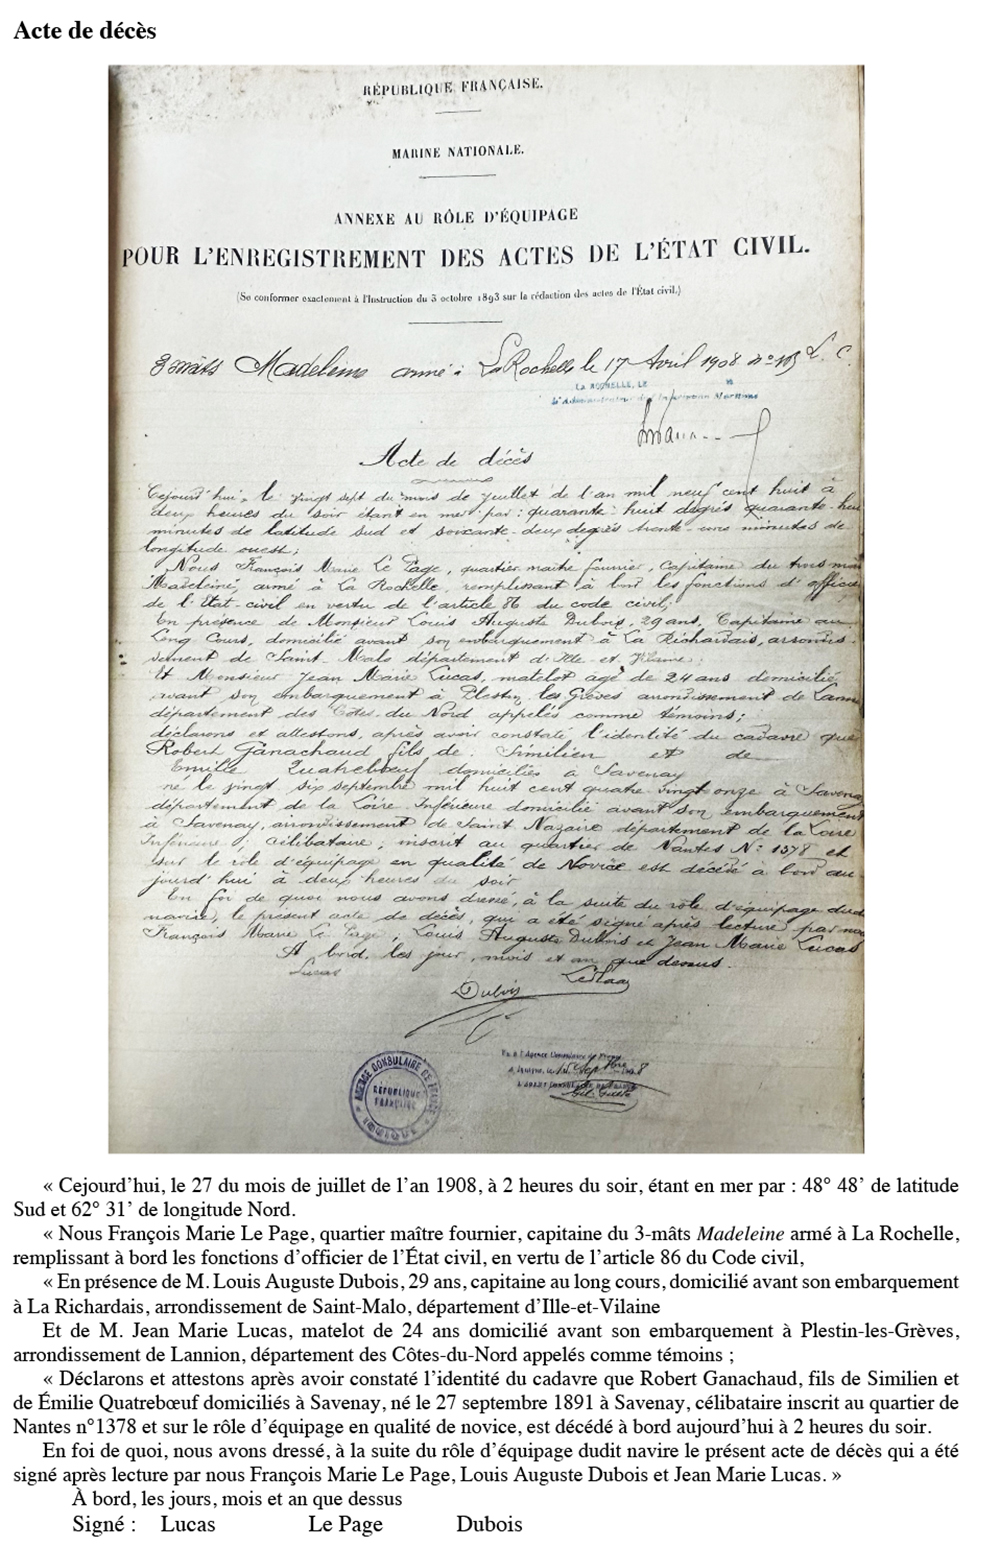 Acte de décès
RÉPUBLIQUE FRANÇAISE.
MARINE NATIONALE.
ANNEXE AU RÔLE D'ÉQUIPAGE
POUR L'ENREGISTREMENT DES ACTES DE L'ÉTAT CIVIL.
(Se conformer exactement à l'Instruction du 3 octobre 1893 sur la rédaction des actes de l'État civil.)
3 mâts Madeleine armé à La Rochelle le 17 Avril 1908 n° 103 L. C.
LA ROCHELLE, LE
Acte de décès
Cejourd'hui, le vingt sept du mois de juillet de l'an mil neuf cent huit à
deux heures du soir étant en mer par : quarante huit degrés quarante-huit
minutes de latitude sud et soixante-deux degrés trente-une minutes de
longitude ouest;
Nous François Marie Le Page, quartier maître fournier, Capitaine du trois mâts
Madeleine, armé à La Rochelle, remplissant à bord les fonctions d'officier
de l'Etat-civil en vertu de l'article 86 du code civil;
En présence de Monsieur Louis Auguste Dubois, 29 ans, Capitaine au
Long Cours, domicilié avant son embarquement à La Richardais, arrondis-
sement de Saint-Malo département d'Ille-et-Vilaine;
Et Monsieur Jean Marie Lucas, matelot âgé de 24 ans domicilié
avant son embarquement à Plestin les Grèves arrondissement de Lann
département des Côtes du Nord appelés comme témoins;
déclarons et attestons, après avoir constaté l'identité du cadavre que
Robert Ganachaud fils de Similien et de
Emilie Quatreboeuf domiciliés à Savenay
né le vingt six septembre mil huit cent quatre vingt onze à Savenay
département de la Loire-Inférieure domicilié avant son embarquement
à Savenay, arrondissement de Saint Nazaire département de la Loire
Inférieure; célibataire, inscrit au quartier de Nantes N° 1378 et
sur le rôle d'équipage en qualité de Novice est décédé à bord au-
jourd'hui à deux heures du soir
En foi de quoi nous avons dressé, à la suite du rôle d'équipage dudit
navire, le présent acte de décès, qui a été signé après lecture par nous
François Marie Le Page, Louis Auguste Dubois et Jean Marie Lucas
A bord, les jour, mois et an que dessus.
Lucas
Dubois
LePage
AGENCE CONSULAIRE DE FRANCE
RÉPUBLIQUE
FRANÇAISE
Vu à l'Agence Consulaire de France
L'AGENT CONSULAIRE DE FRANCE
« Cejourd'hui, le 27 du mois de juillet de l'an 1908, à 2 heures du soir, étant en mer par : 48° 48' de latitude
Sud et 62° 31' de longitude Nord.
« Nous François Marie Le Page, quartier maître fournier, capitaine du 3-mâts Madeleine armé à La Rochelle,
remplissant à bord les fonctions d'officier de l'État civil, en vertu de l'article 86 du Code civil,
« En présence de M. Louis Auguste Dubois, 29 ans, capitaine au long cours, domicilié avant son embarquement
à La Richardais, arrondissement de Saint-Malo, département d'Ille-et-Vilaine
Et de M. Jean Marie Lucas, matelot de 24 ans domicilié avant son embarquement à Plestin-les-Grèves,
arrondissement de Lannion, département des Côtes-du-Nord appelés comme témoins ;
« Déclarons et attestons après avoir constaté l'identité du cadavre que Robert Ganachaud, fils de Similien et
de Émilie Quatrebœuf domiciliés à Savenay, né le 27 septembre 1891 à Savenay, célibataire inscrit au quartier de
Nantes n°1378 et sur le rôle d'équipage en qualité de novice, est décédé à bord aujourd'hui à 2 heures du soir.
En foi de quoi, nous avons dressé, à la suite du rôle d'équipage dudit navire le présent acte de décès qui a été
signé après lecture par nous François Marie Le Page, Louis Auguste Dubois et Jean Marie Lucas. »
À bord, les jours, mois et an que dessus
Signé : Lucas Le Page Dubois